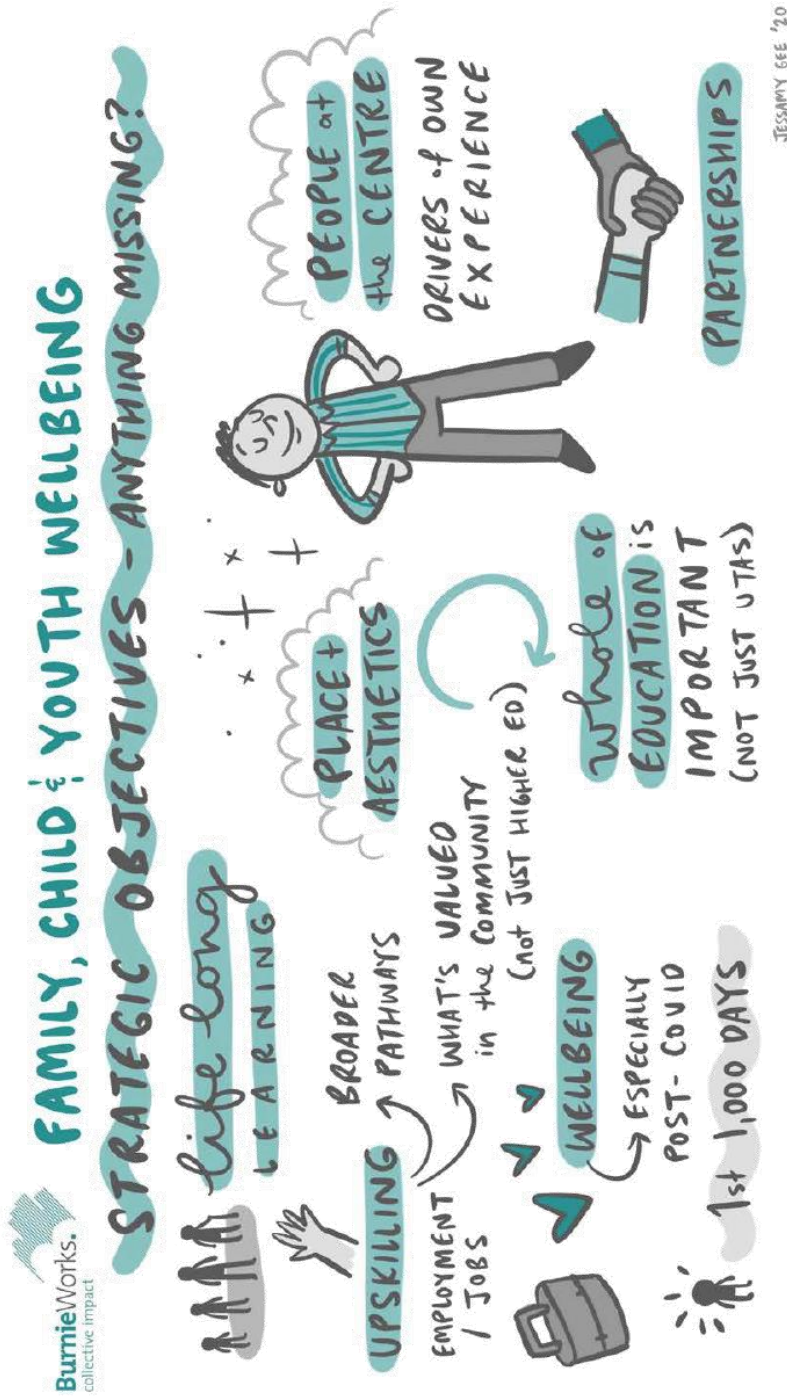 BurnieWorks.
collective impact
FAMILY, CHILD & YOUTH WELLBEING
STRATEGIC OBJECTIVES - ANYTHING MISSING?
life long
LEARNING
UPSKILLING
EMPLOYMENT
/ JOBS
BROADER
PATHWAYS
WHAT'S VALUED
in the COMMUNITY
(not JUST HIGHER ED)
WELLBEING
ESPECIALLY
POST-COVID
1st 1,000 DAYS
PLACE +
AESTHETICS
whole OF
EDUCATION is
IMPORTANT
(NOT JUST UTAS)
PEOPLE at
the CENTRE
DRIVERS of OWN
EXPERIENCE
PARTNERSHIPS
JESSAMY GEE '20